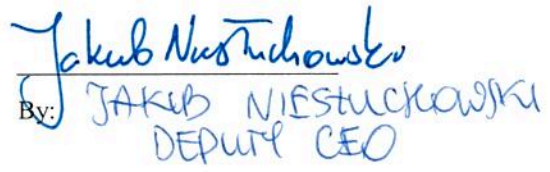 Jakub Niesłuchowski
By: JAKUB NIESŁUCHOWSKI
DEPUTY CEO